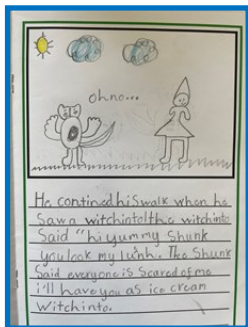 oh no...
He contined his walk when he
saw a witchinto! the witchinto
said "hi yummy Shunk
you look my lunh. The Shunk
said everyone is scared of me
i'll have you as ice cream
witchinto.